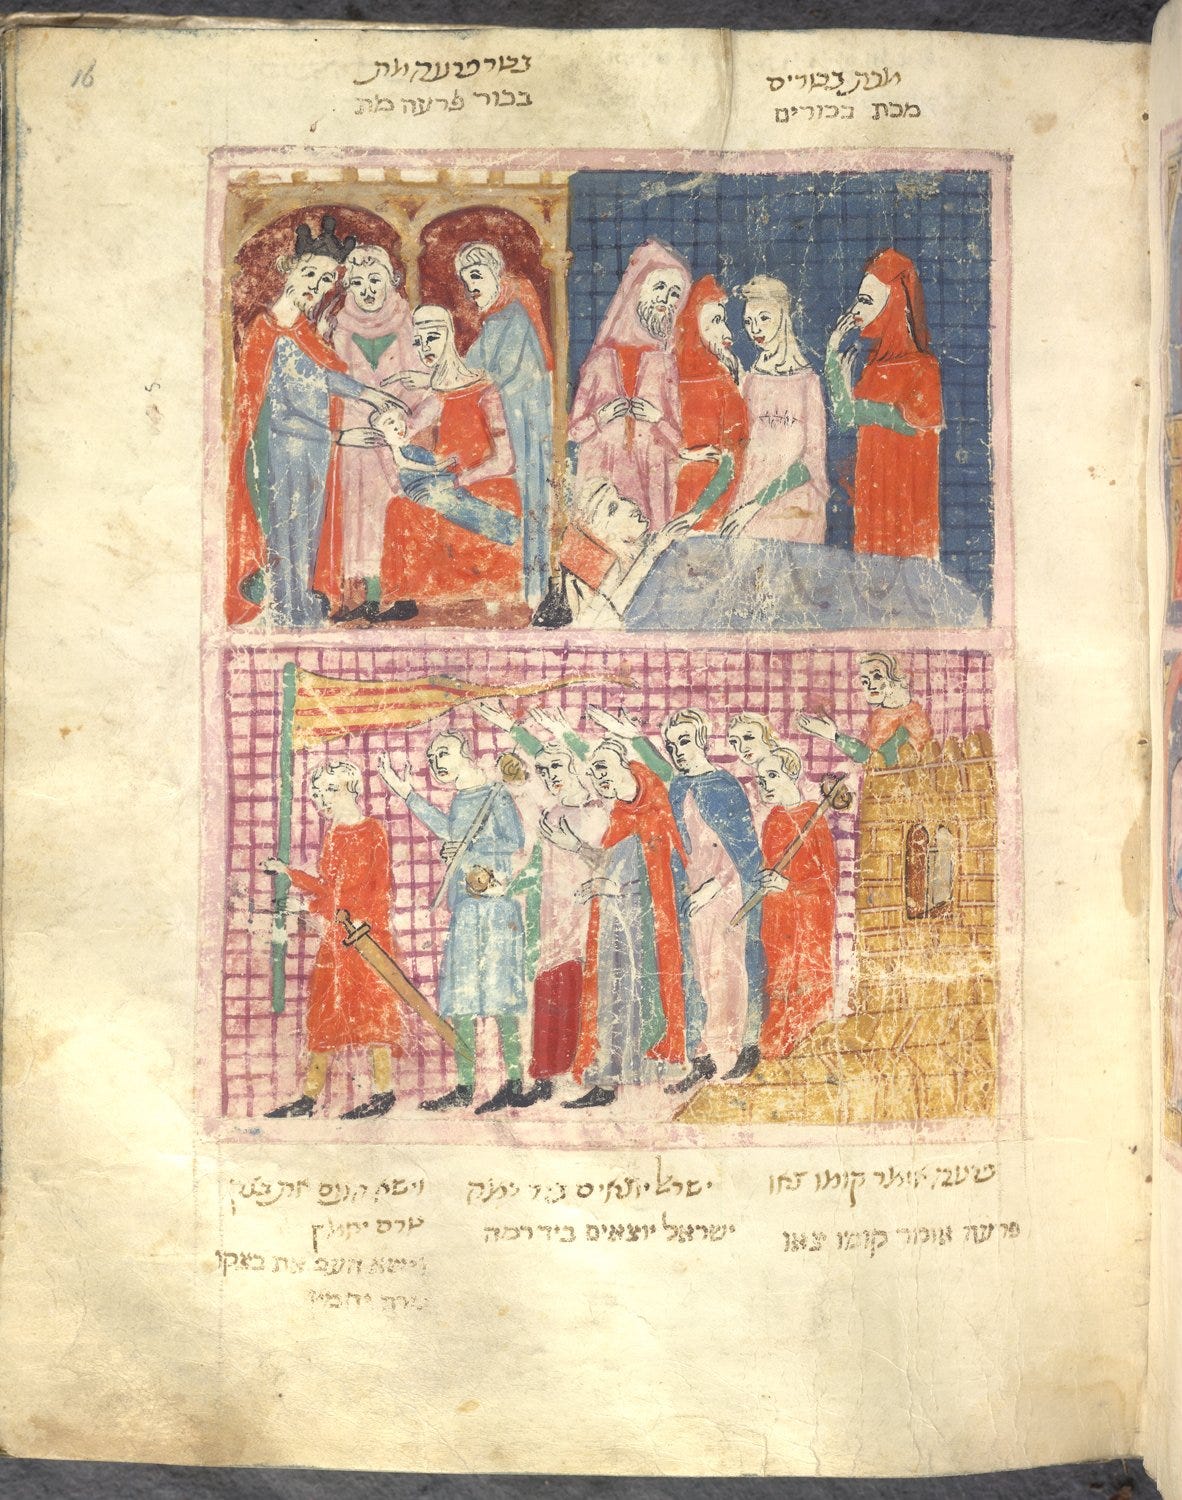 מכת בכורים
מכת בכורים
בכור פרעה מת
בכור פרעה מת
16
פרעה אומר קומו צאו
פרעה אומר קומו צאו
ישראל יוצאים ביד רמה
ישראל יוצאים ביד רמה
וישא העם את בצקו
טרם יחמץ
וישא העם את בצקו
טרם יחמץ